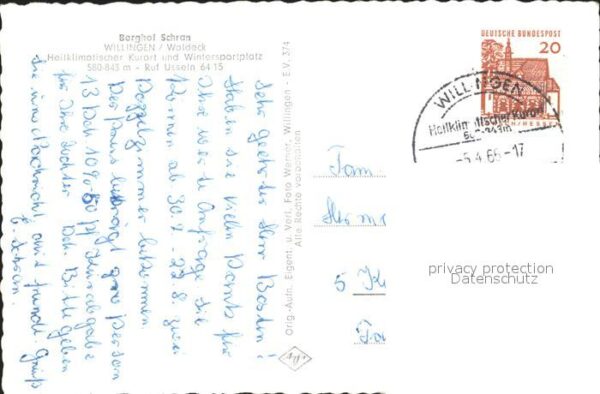 Berghof Schran
WILLINGEN / Waldeck
Heilklimatischer Kurort und Wintersportplatz
580-843 m - Ruf Usseln 64 15
Sehr geehrter Herr
Haben sie vielen Dank für
Ihre werte Anfrage sie
können ab 30.7 - 22.8 zwei
Doppelzimmer bekommen.
Der preis beträgt pro person
13 DM 10% 50 pf Kurabgabe
für Ihre Tochter DM. Bitte geben
Sie uns Nachricht mit freundl. Grüß
E. Schran
Orig.-Aufn. Eigent. u. Verl. Foto Werner, Willingen - E.V. 374
Alle Rechte vorbehalten
Fam.
Herm
5 K
DEUTSCHE BUNDESPOST
20
WILLINGEN
Heilklimatischer Kurort
580-843m
-5.4.66-17
privacy protection
Datenschutz